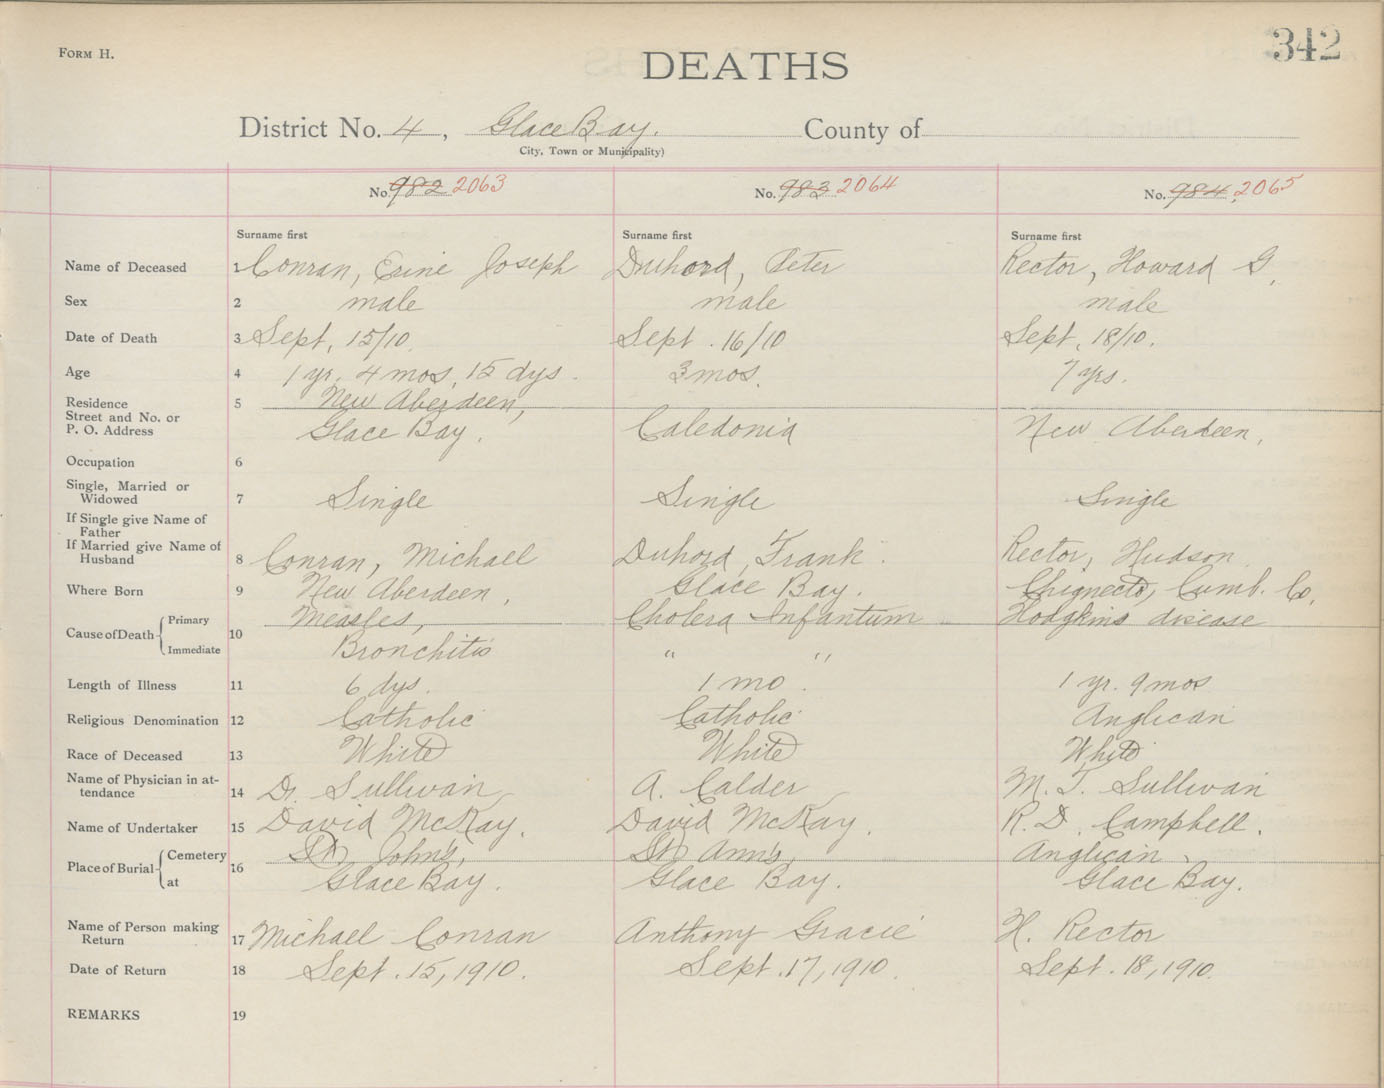 FORM H.
342
DEATHS
District No. 4, Glace Bay. County of
City, Town or Municipality)
No. 982 2063 No. 983 2064 No. 984, 2065
Surname first Surname first Surname first
Name of Deceased 1 Conran, Erine Joseph Duhord, Peter Rector, Howard G.
Sex 2 male male male
Date of Death 3 Sept, 15/10. Sept. 16/10 Sept, 18/10.
Age 4 1 yr. 4 mos, 15 dys. 3 mos. 7 yrs.
Residence 5 New Aberdeen,
Street and No. or
P. O. Address Glace Bay. Caledonia New Aberdeen,
Occupation 6
Single, Married or
Widowed 7 Single Single Single
If Single give Name of
Father
If Married give Name of
Husband 8 Conran, Michael Duhord, Frank. Rector, Hudson
Where Born 9 New Aberdeen, Glace Bay. Chignecto, Cumb. Co,
Cause of Death Primary 10 Measles, Cholera Infantum Hodgkins disease
Immediate Bronchitis " "
Length of Illness 11 6 dys. 1 mo. 1 yr. 9 mos
Religious Denomination 12 Catholic Catholic Anglican
Race of Deceased 13 White White White
Name of Physician in at-
tendance 14 Dr. Sullivan A. Calder M. T. Sullivan
Name of Undertaker 15 David McKay. David McKay. R. D. Campbell.
Place of Burial Cemetery 16 St John's, St Ann's, Anglican,
at Glace Bay. Glace Bay. Glace Bay.
Name of Person making
Return 17 Michael Conran Anthony Gracie H. Rector
Date of Return 18 Sept. 15, 1910. Sept. 17, 1910. Sept. 18, 1910.
REMARKS 19